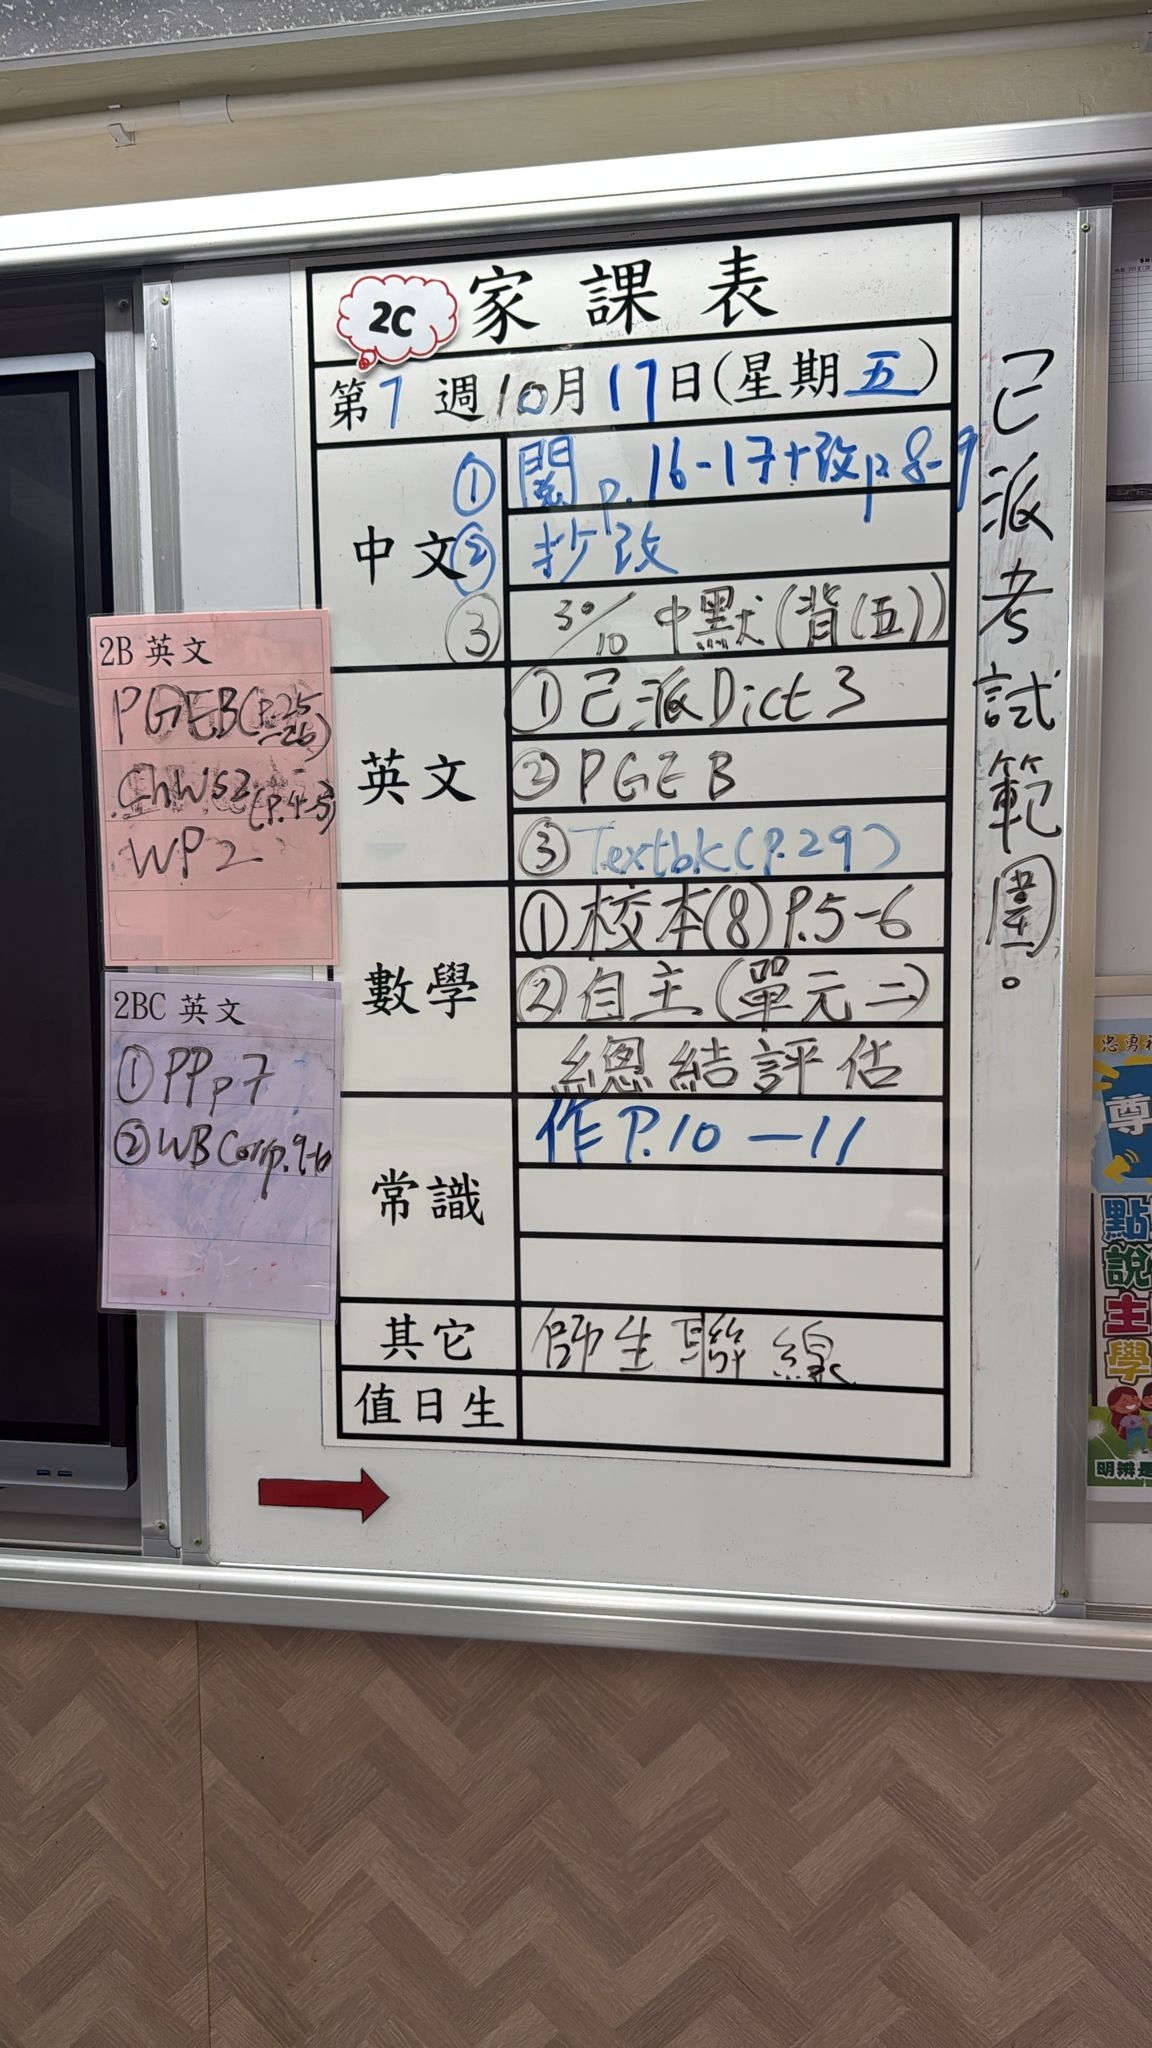 2C 家課表
第7週10月17日(星期五)
中文
① 閱p.16-17+改p.8-9
② 抄改
③ 30/10 中默(背(五))
英文
①已派Dict 3
②PGEB
③Textbk(P.29)
數學
①校本(8)P.5-6
②自主(單元二)
總結評估
常識
作P.10—11
其它
師生聯線
值日生
已派考試範圍。
2B 英文
PGEB(P.25-26)
GhWS2(P.4-5)
WP2
2BC 英文
①PPp7
②WB Corr p.9-10
忠勇
尊
點
說
主
學
明辨是